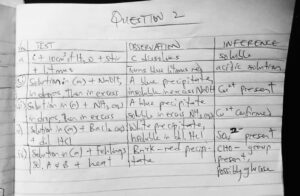 QUESTION 2
TEST | OBSERVATION | INFERENCE
a C + 10cm³ of H2O + stir | C dissolves | soluble
+ litmus | turns blue litmus red | acidic solution
Solution in (a) + NaOH | A blue precipitate
in drops, then in excess | insoluble in excess NaOH | Cu²⁺ present
Solution in (a) + NH3 (aq) | A blue precipitate
in drops, then in excess | soluble in excess NH3 (aq) | Cu²⁺ confirmed
Solution in (a) + BaCl2 (aq) | White precipitate | SO4²⁻ present
+ dil HCl | insoluble in dil HCl
iv) Solution in (a) + fehlings | Brick-red precip- | CHO- group
sol. A & B + heat | tate | present
possibly glucose